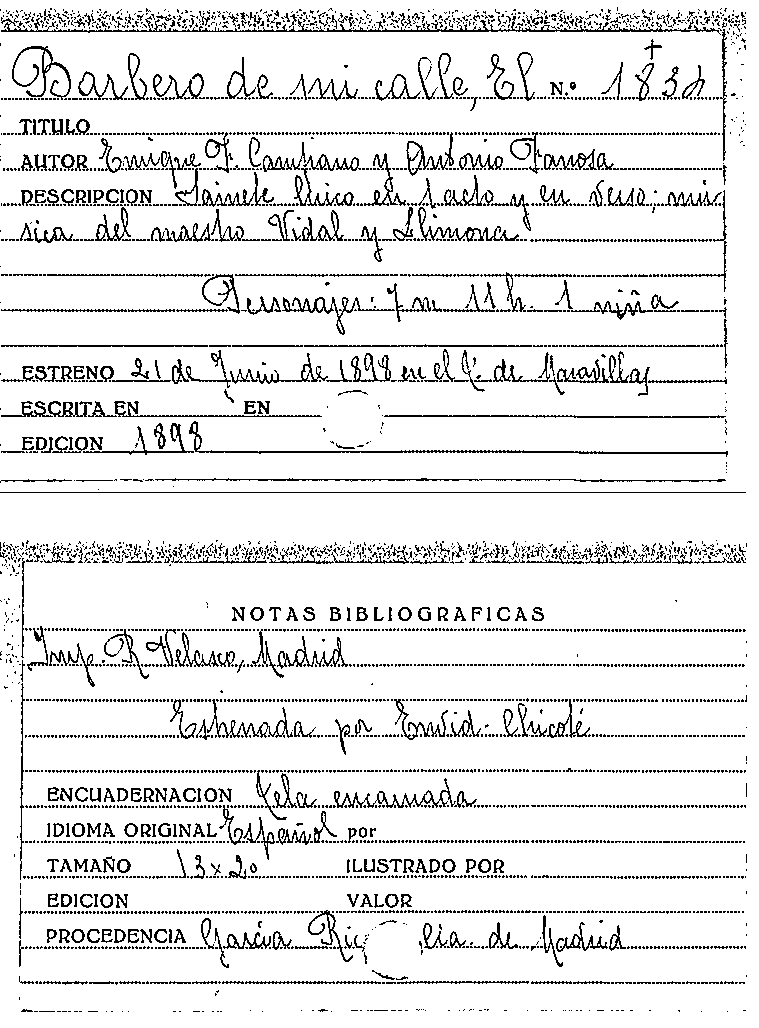 Barbero de mi calle, El N.º 1832
TITULO
AUTOR Enrique F. Campano y Antonio Fanosa
DESCRIPCION Sainete lírico en 1 acto y en verso; mú-
sica del maestro Vidal y Llimona
Personajes: 7 m 11 h. 1 niña
ESTRENO 21 de Junio de 1898 en el T. de Maravillas
ESCRITA EN EN
EDICION 1898
NOTAS BIBLIOGRAFICAS
Imp. R Velasco, Madrid
Estrenada por Chicoté
ENCUADERNACION Tela encarnada
IDIOMA ORIGINAL Español por
TAMAÑO 13 x 20 ILUSTRADO POR
EDICION VALOR
PROCEDENCIA García cia. de Madrid